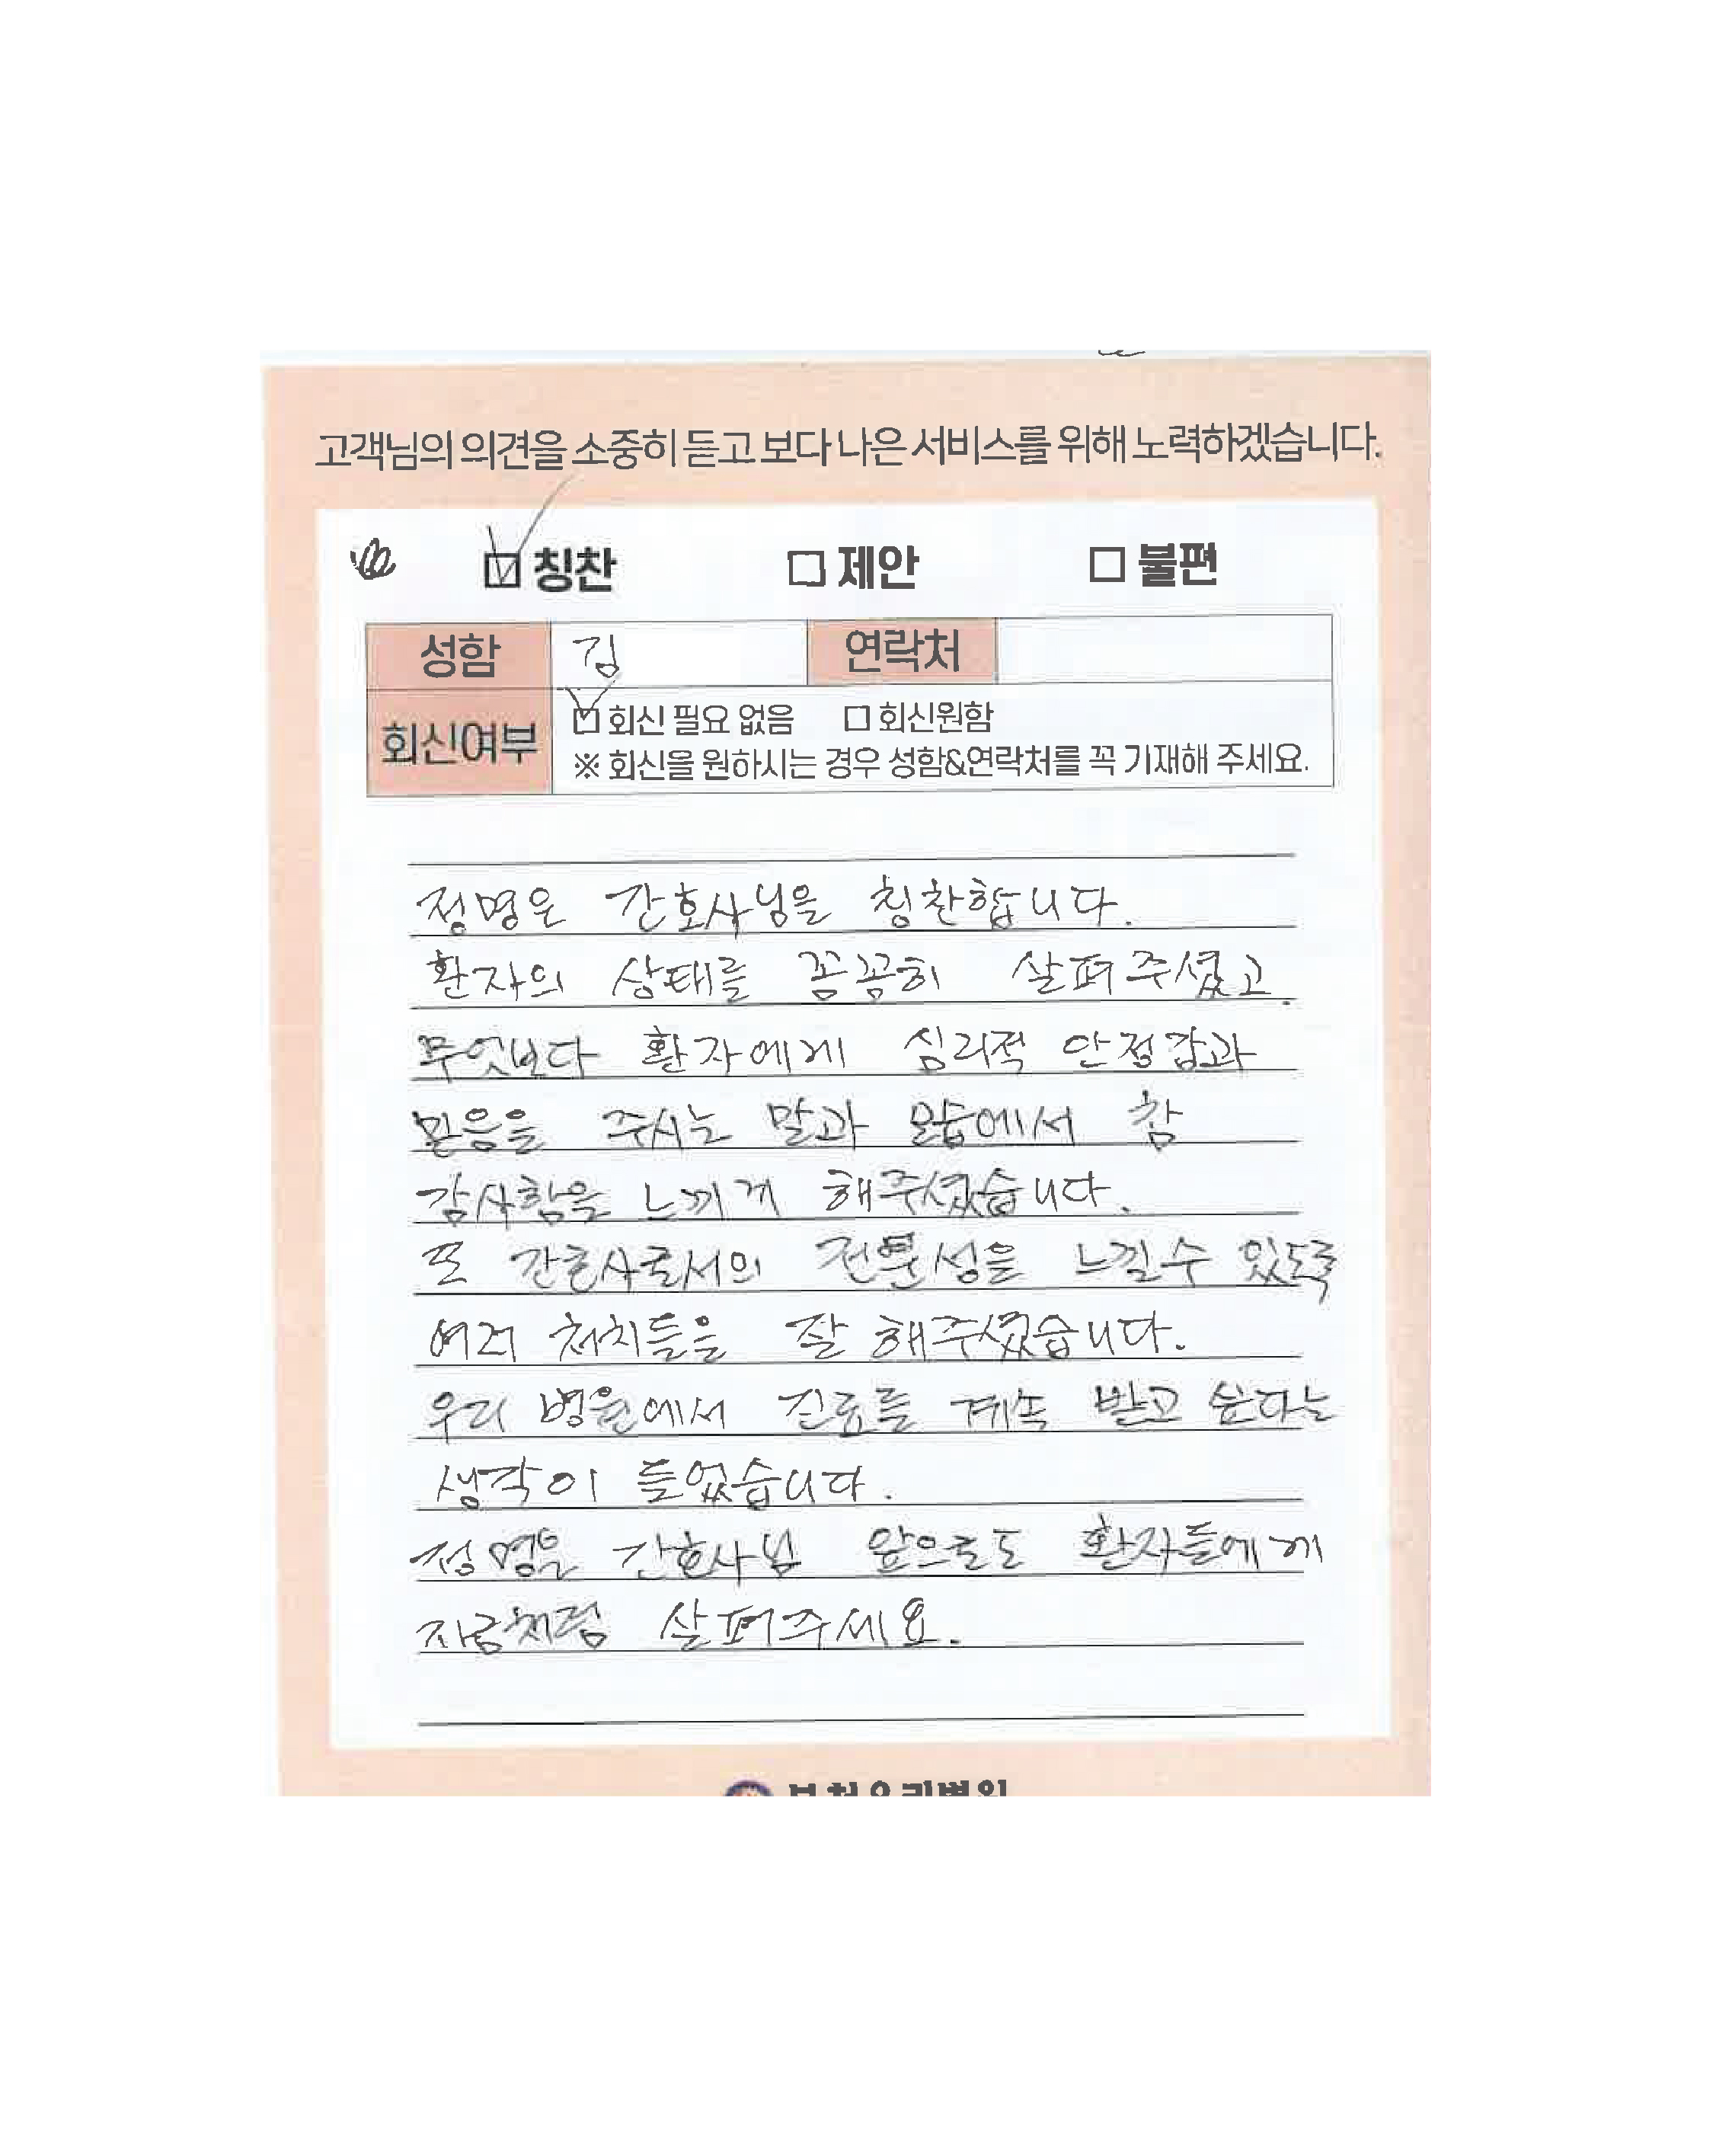 고객님의 의견을 소중히 듣고 보다 나은 서비스를 위해 노력하겠습니다.
칭찬 제안 불편
성함 김 연락처
회신여부 회신 필요 없음 회신원함
※ 회신을 원하시는 경우 성함&연락처를 꼭 기재해 주세요.
정명은 간호사님을 칭찬합니다.
환자의 상태를 꼼꼼히 살펴주셨고.
무엇보다 환자에게 심리적 안정감과
믿음을 주시는 말과 모습에서 참
감사함을 느끼게 해주셨습니다.
또 간호사로서의 전문성을 느낄수 있도록
여러 처치들을 잘 해주셨습니다.
우리 병원에서 진료를 계속 받고 싶다는
생각이 들었습니다.
정명은 간호사님 앞으로도 환자들에게
지금처럼 살펴주세요.